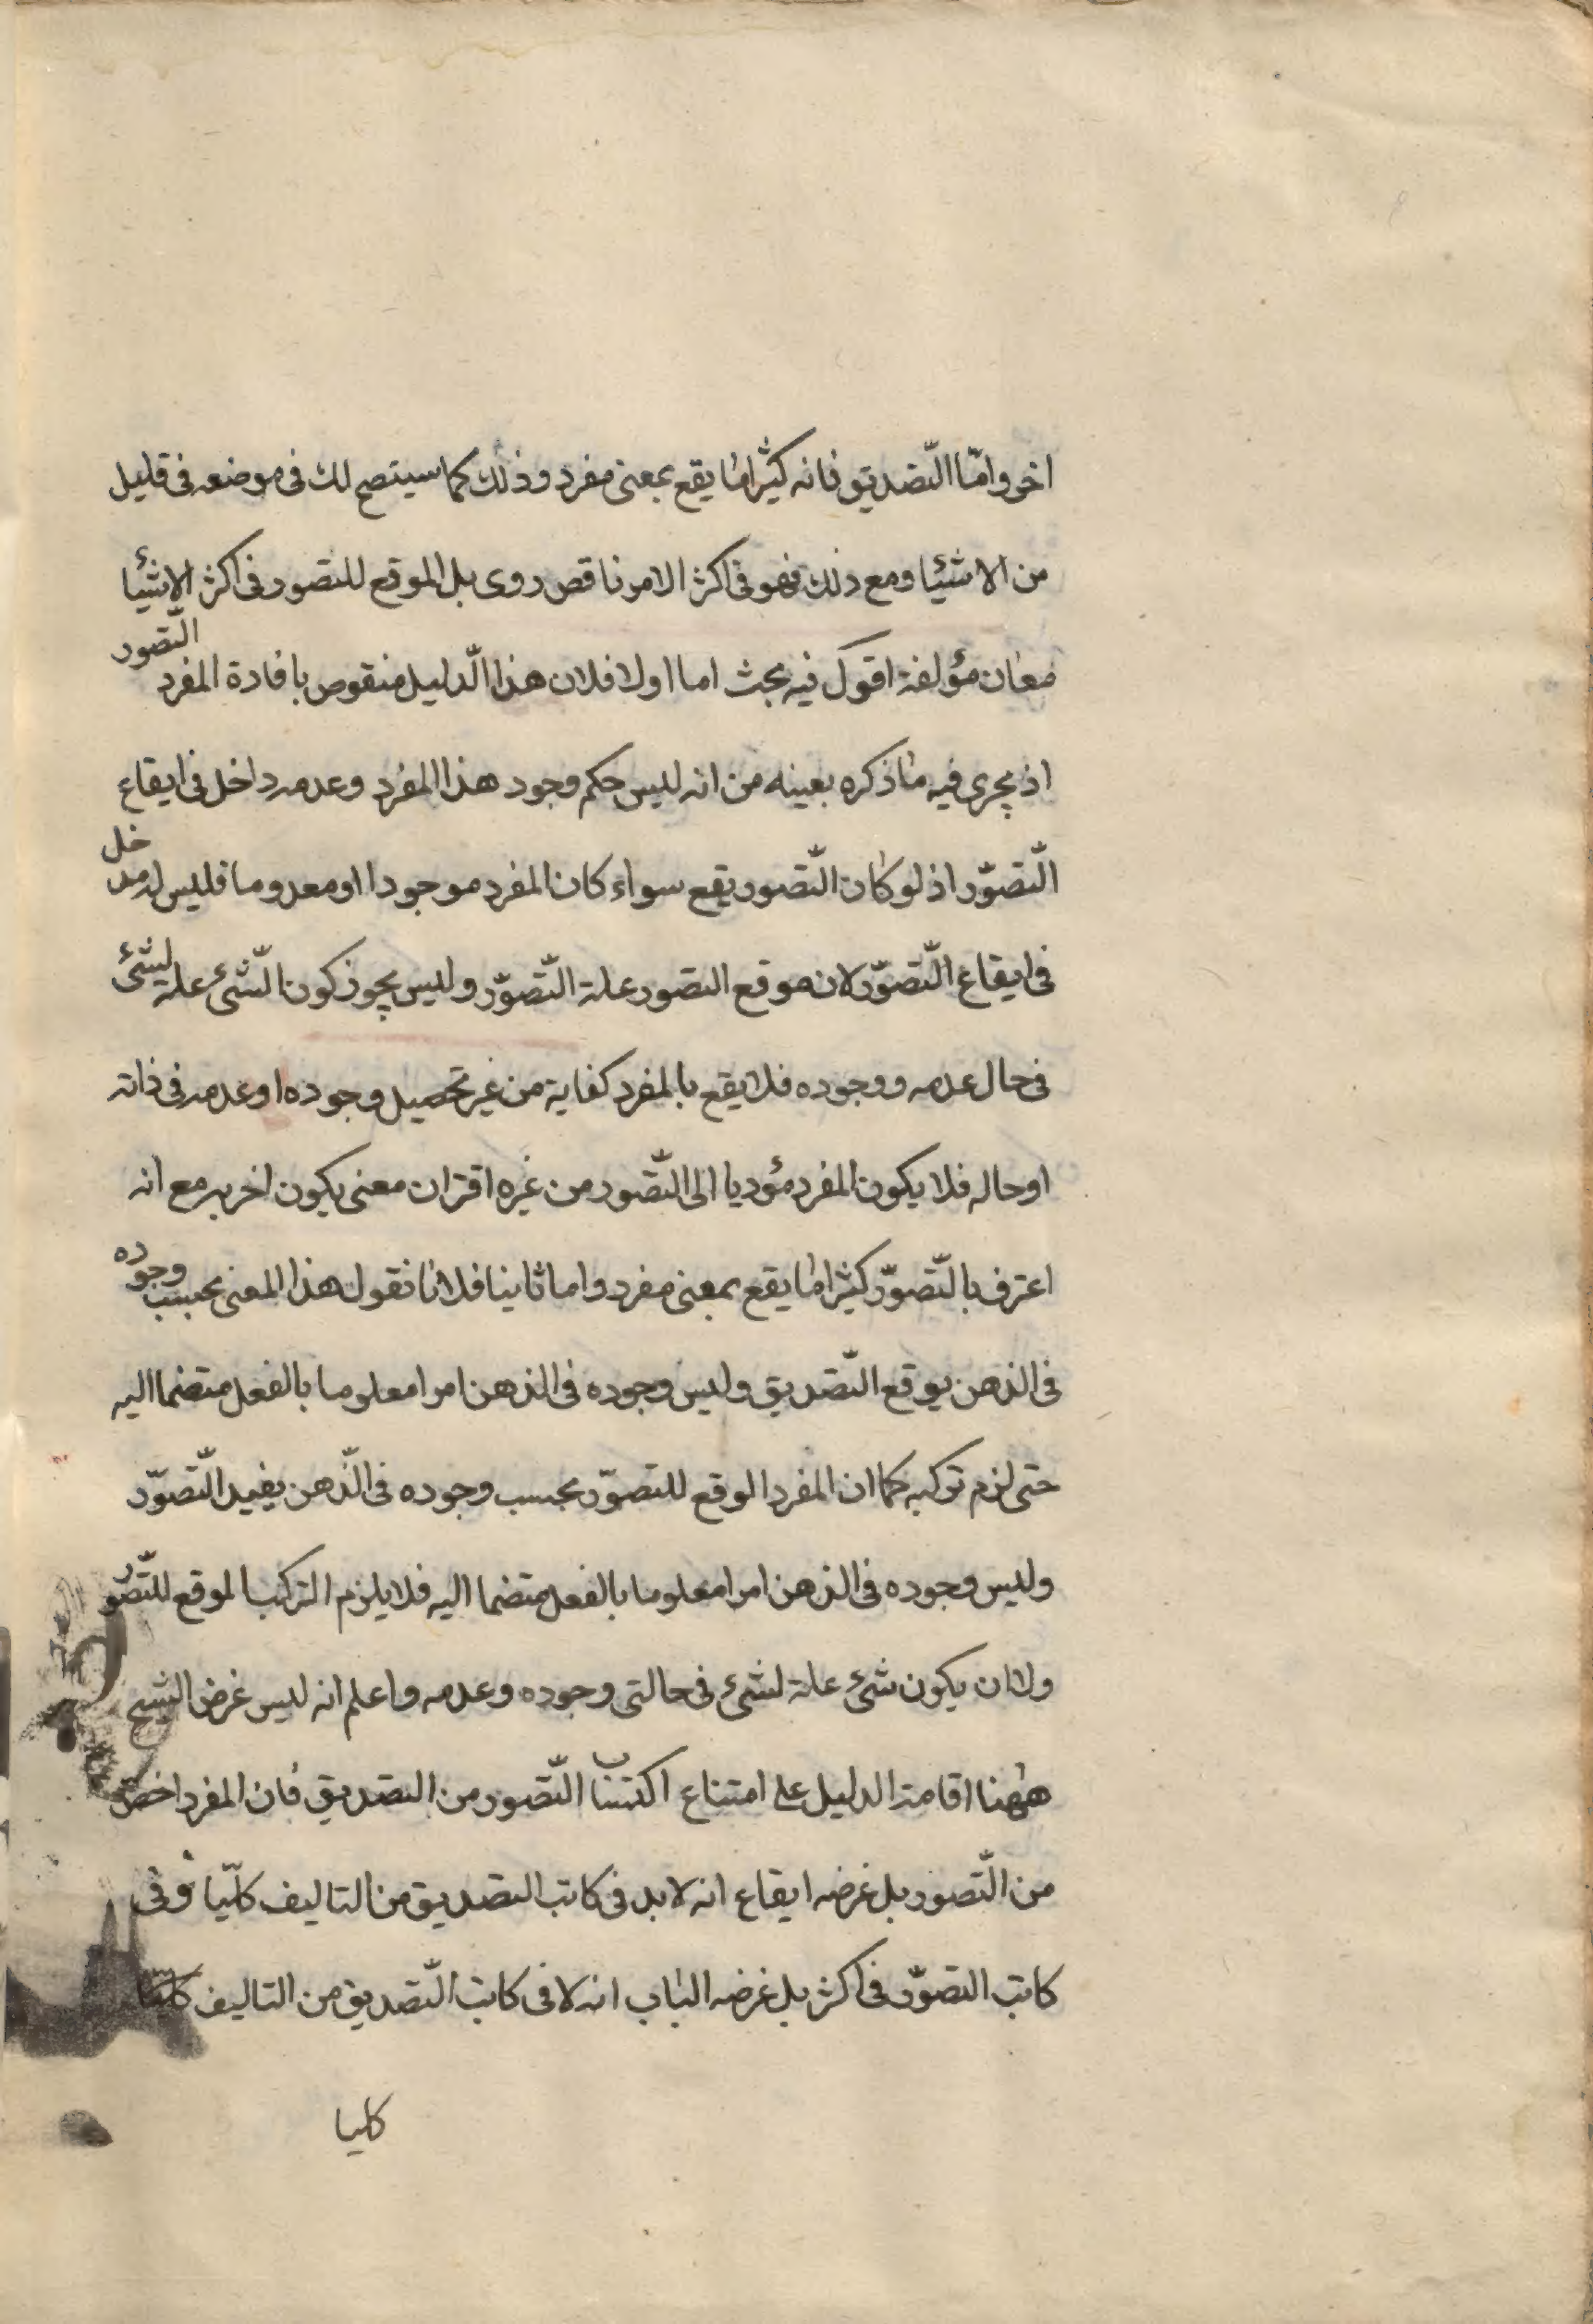 اخر وامّا التّصديق فانه كثيرا ما يقع بمعنى مفرد وذلك كما سيتضح لك فى موضعه فى قليل
من الاشيئا ومع ذلك فهو فى اكثر الامر ناقص روى بل الموقع للتصور فى اكثر الاشيئا
معان مؤلفة اقول فيه بحث اما اولا فلان هذا الّدليل منقوص بافادة المفرد التّصور
اذ يجرى فيه ما ذكره بعينه من انه ليس حكم وجود هذا المفرد وعدمه داخل فى ايقاع
التّصوّر اذ لو كان التّصور يقع سواء كان المفرد موجودا او معدوما فليس له مدخل
فى ايقاع التّصوّر لان موقع التصور علة التّصوّر وليس يجوز كون الشّئ علة لشئ
فى حال عدمه ووجوده فلا يقع بالمفرد كفاية من غير تحصيل وجوده او عدمه فى ذاته
او حاله فلا يكون المفرد مؤديا الى التّصور من غيره اقتران معنى يكون اخر به مع انه
اعترف بالتّصوّر كثيرا ما يقع بمعنى مفرد واما ثانيا فلانا نقول هذا المعنى بحسب وجوده
فى الذهن يوقع التّصديق وليس وجوده فى الذهن امرا معلوما بالفعل متضما اليه
حتى لزم تركبه كما ان المفرد الوقع للتصوّر بحسب وجوده فى الذّهن يفيد التّصوّر
وليس وجوده فى الذهن امرا معلوما بالفعل متضما اليه فلا يلزم التركب الموقع للتّصور
ولا ان يكون شئ علة لشئ فى حالتى وجوده وعدمه واعلم انه ليس غرض الشيخ
ههنا اقامة الدليل على امتناع اكتساب التّصور من التصديق فان المفرد اخص
من التّصور بل غرضه ايقاع انه لا بد فى كاتب التصديق من التاليف كلّيا وفى
كاتب التصوّر فى اكثر بل غرضه الباب انه لا فى كاتب التّصديق من التاليف كليا
كليا